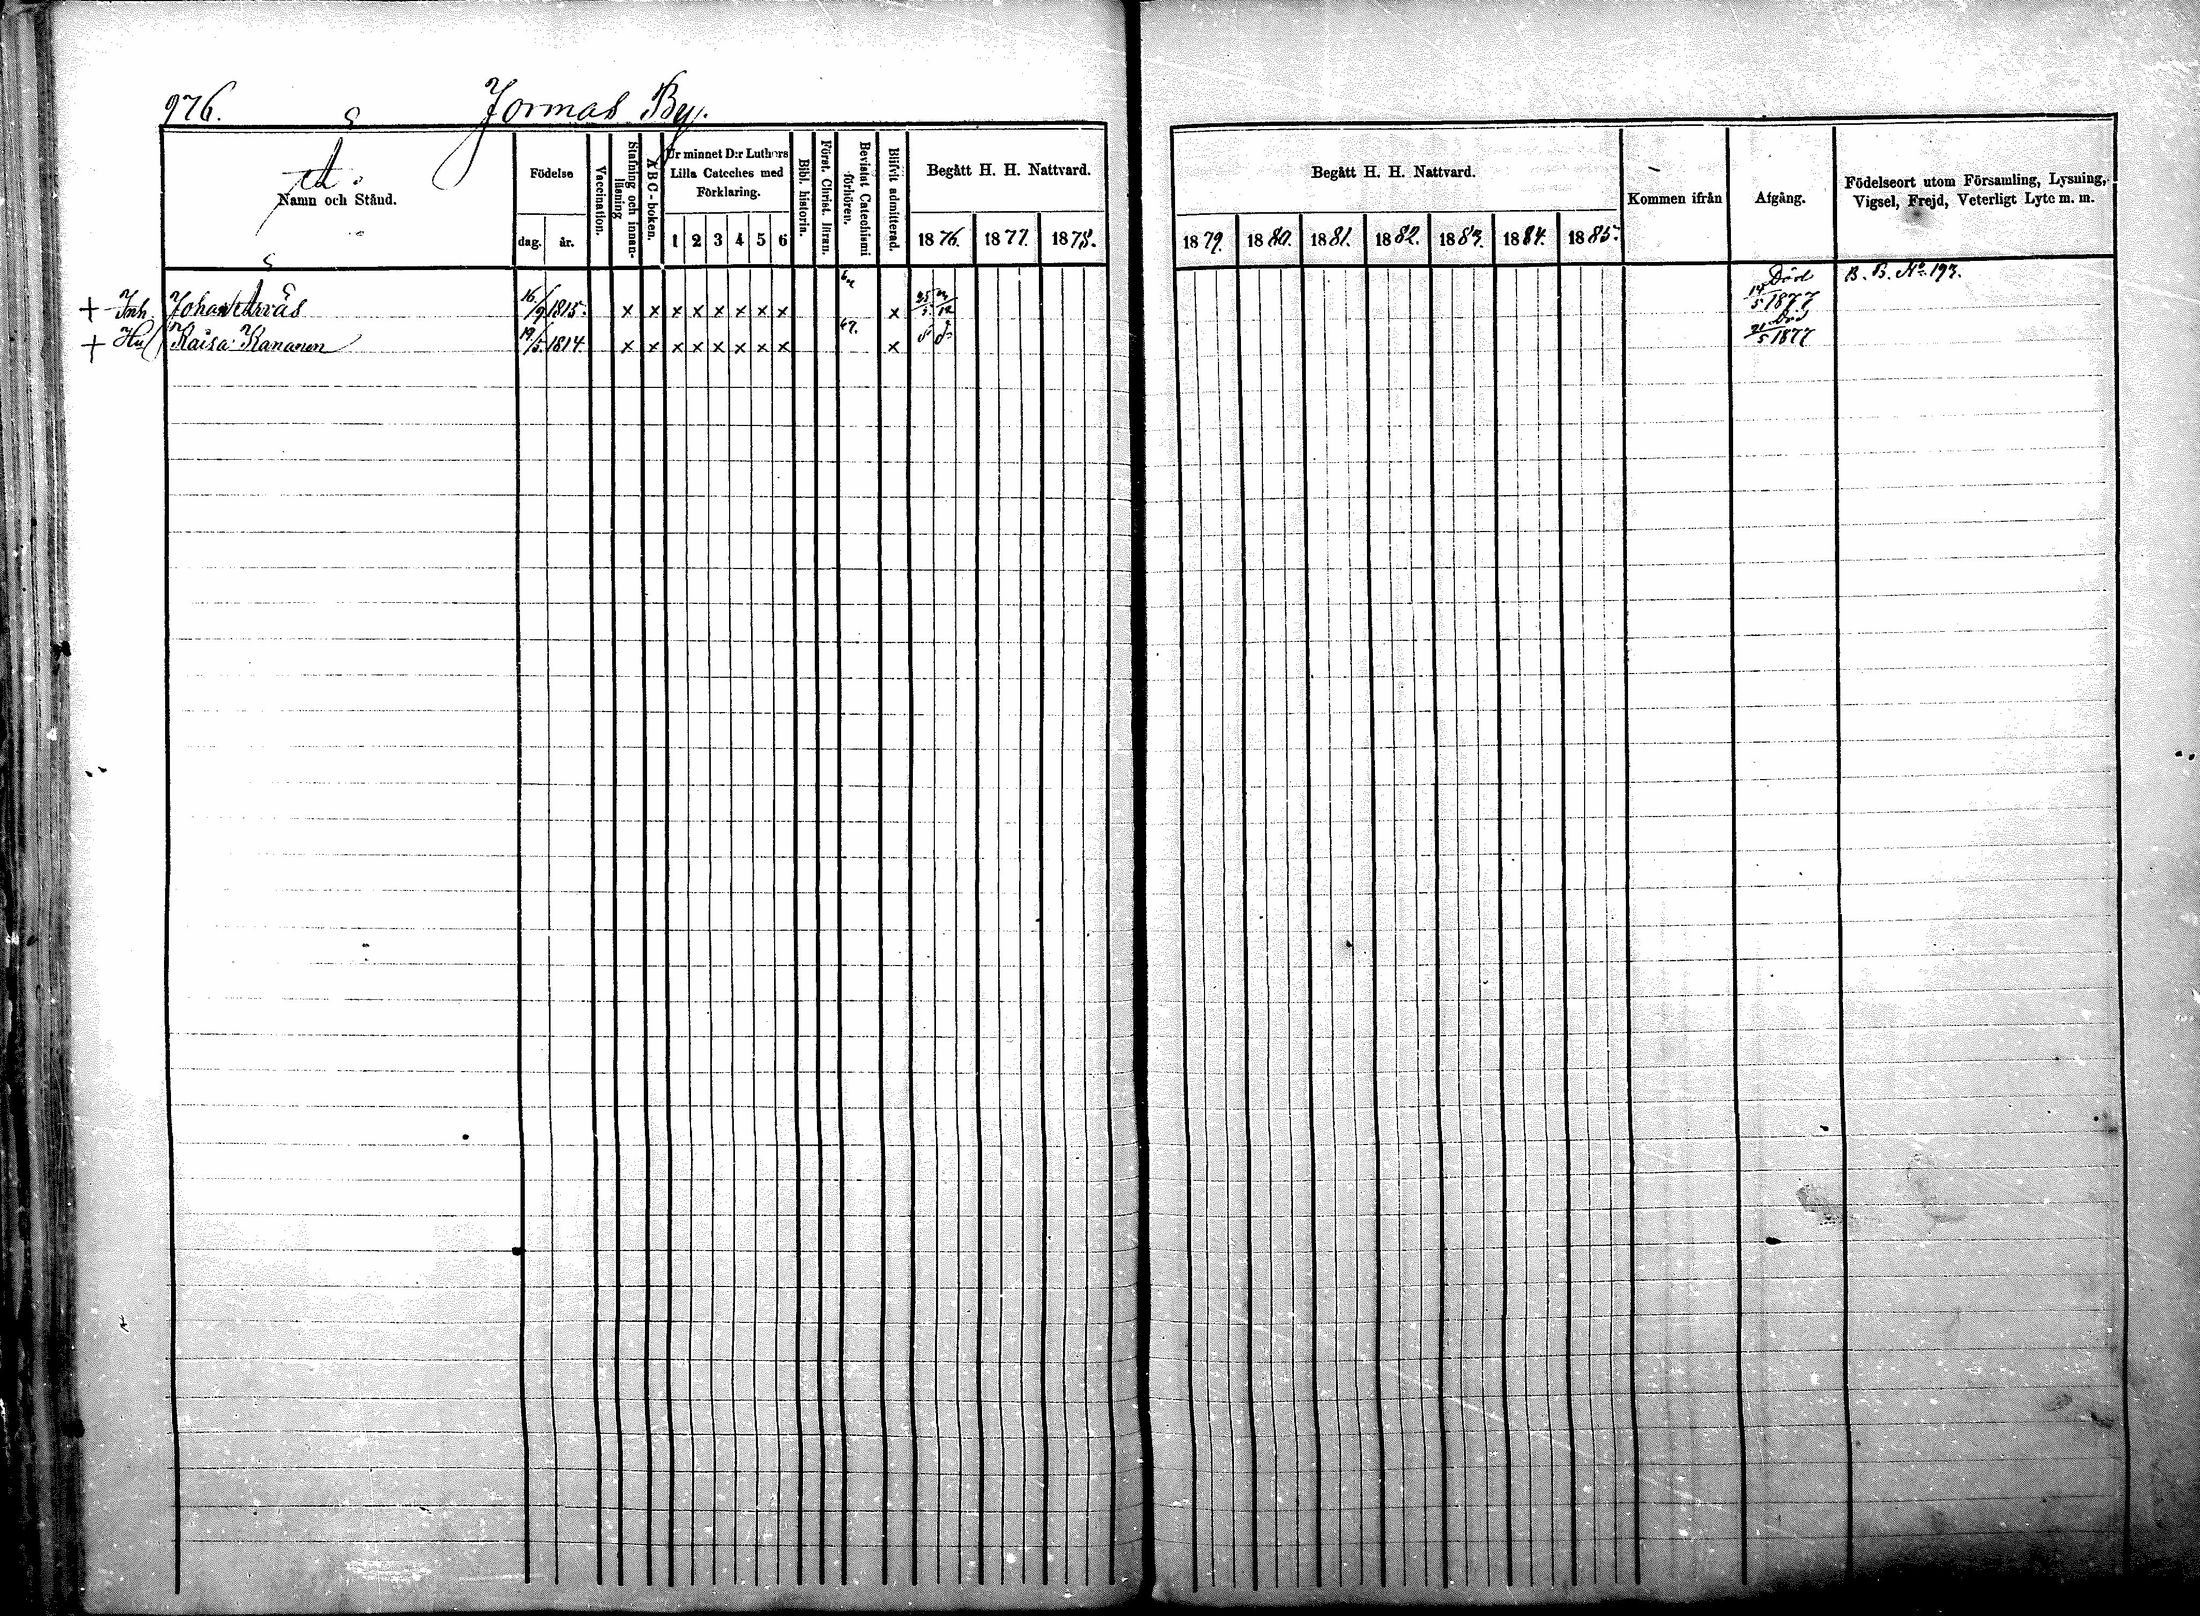 976. Jormas By.
A.
Namn och Stånd.
Födelse
dag. år.
Vaccination.
Stafning och Innan-läsning
ABC-boken.
Ur minnet D:r Luthers Lilla Cateches med Förklaring.
1 2 3 4 5 6
Bibl. historia.
Först. Christ. läran.
Bevistat Catechismi förhören.
Blifvit admitterad.
Begått H. H. Nattvard.
1876. 1877. 1878.
Begått H. H. Nattvard.
1879. 1880. 1881. 1882. 1883. 1884. 1885.
Kommen ifrån
Afgång.
Födelseort utom Församling, Lysning,
Vigsel, Frejd, Veterligt Lyte m. m.
+ Inh. Johan Arväs 16/9 1815. x x x x x x x x x Död 14/5 1877 B. B. No. 193.
+ Hu Kaisa Kananen 19/5 1814 x x x x x x x x x Död 21/5 1877